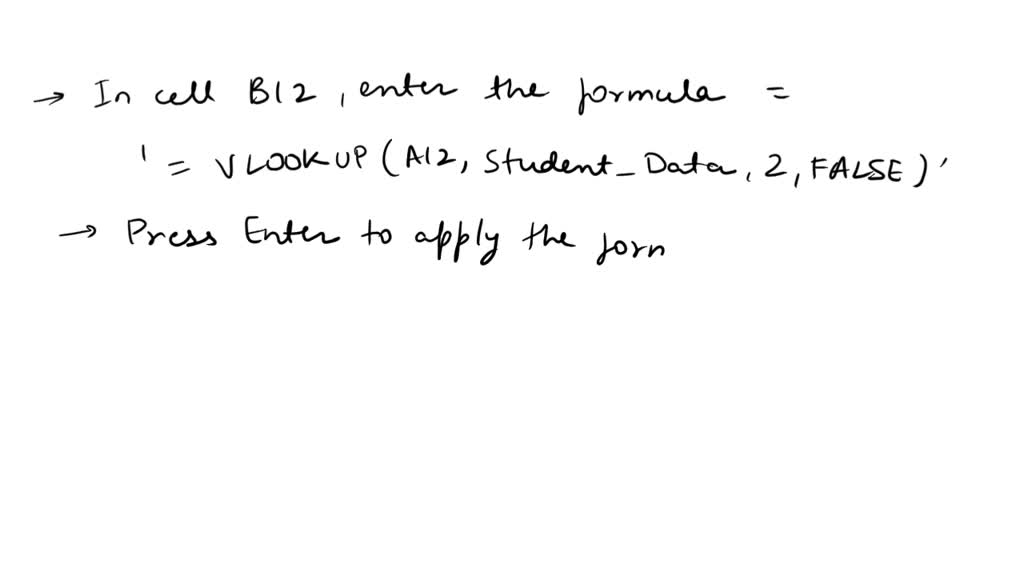 → In cell B12, enter the formula =
' = VLOOKUP(A12, Student_Data, 2, FALSE)'
→ Press Enter to apply the form